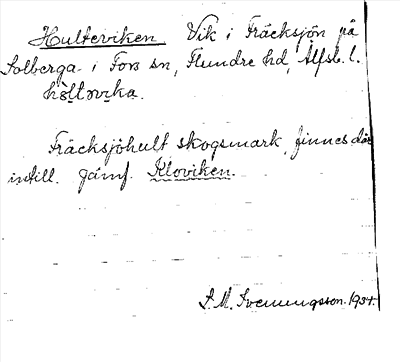 Hulteviken Vik i Fräcksjön på
Solberga i Fors sn, Flundre hd, Älfsb. l.
hùltəvi̱ka.
Fräcksjöhult skogsmark, finnes där
intill. Jämf. Kloviken.
S. M. Svenungsson. 1934.